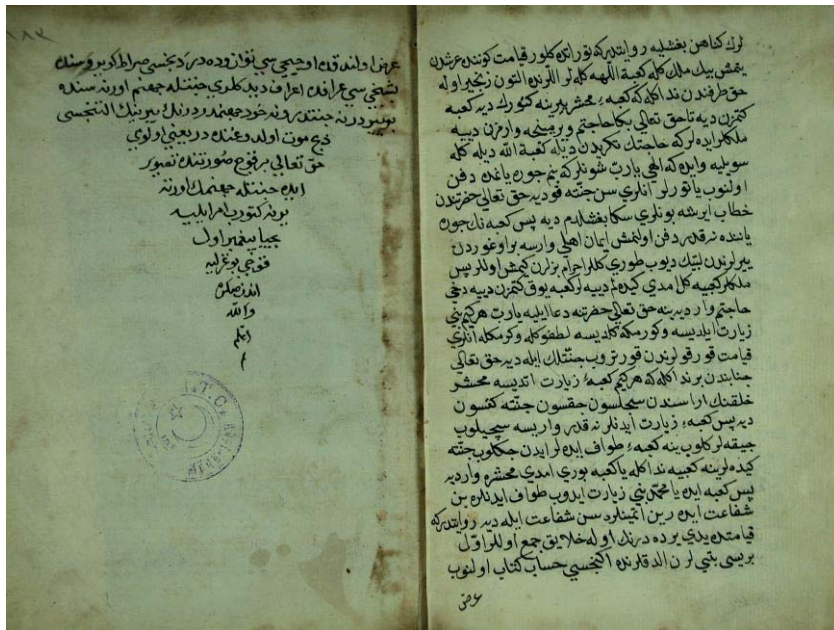 لرك كناهن بغشليه روايتدركه توراتده كلور قيامت كوننده عرشدن
يتمش بيك ملك كله كعبة اللهه كله لر اللرنده التون زنجير اوله
حق طرفندن ندا كله كه كعبهء محشر يرينه كتورك ديه كعبه
كتمزن ديه تا حق تعالى بكا حاجتم ويرمينجه وارمزن دييه
ملكلر ايده لركه حاجتك نكريدن ديله كعبة الله ديله كله
سويليه وايده كه الهي يارب شونلركه بنم جوره ياغده دفن
اولنوب ياتورلر انلري سن جنته قو ديه حق تعالى حضرتندن
خطاب ايرشه بونلري سكا بغشلدم ديه پس كعبه نك جوره
ياننده نه قدر دفن اولنمش ايمان اهلي وارسه براوغوردن
يرلرندن لبيك ديوب طوري كلر احرام بزلرن كيمش اوللر پس
ملكلر كعبيه كل امدي كيده لم دييه لر كعبه يوق كتمزن دييه دخي
حاجتم وار ديه ينه حق تعالى حضرتنه دعا ايليه يارب هر كيم بني
زيارت ايلديسه و كورمكه كلديسه لطفوكله و كرمكله انلري
قيامت قورقولرندن قورتروب جنتلك ايله ديه حق تعالى
جنابندن برندا كله كه هركيم كعبهء زيارت اتديسه محشر
خلقنك اراسندن سچلسون چقسون جنته كتسون
ديه پس كعبهء زيارت ايدنلر نه قدر واريسه سچيلوب
چيقه لر كلوب ينه كعبهء طواف ايده لر ايدن چكلوب جنته
كيده لر ينه كعبيه ندا كله يا كعبه يوري امدي محشره وار ديه
پس كعبه ايده يا محمد بني زيارت ايدوب طواف ايدنلره بن
شفاعت ايده رين اتمينلره سن شفاعت ايله ديه روايتدركه
قيامتده يدي يرده درنك اوله خلايق جمع اوللر اول
بريسي بتي لرن الدقلرنده اكنجسي حساب كتاب اولنوب
عرض
عرض اولندقده اوچنجي سي ترازوده دردنجسي صراط كوپروسنده
بشنجي سي عرافده اعراف ديدكلري جنتله جهنم اورته سنده
بر يردر نه جنتدر و نه خود جهنمدر درنك بيرينك التنجسي
ذبح موت اولدوغنده در يعني اولوي
حق تعالى بر قوچ صورتنده تصوير
ايده جنتله جهنمك اورته
يرينه كتورب امر ايلييه
يحيا پيغمبر اول
قوچي بوغزليه
اندن صكره
والله
اعلم
م